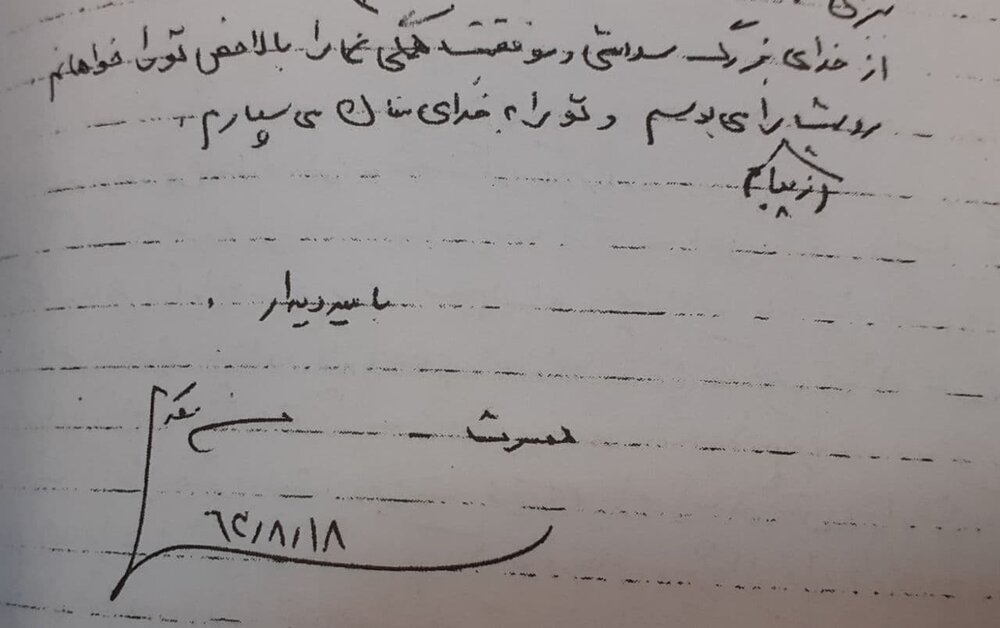 از خدای بزرگ سلامتی و موفقیت همگی شما را بالاخص تو را خواهانم
رویت را می بوسم و تو را به خدای متعال می سپارم.
به امید دیدار .
همسرت
۶۴/۸/۱۸